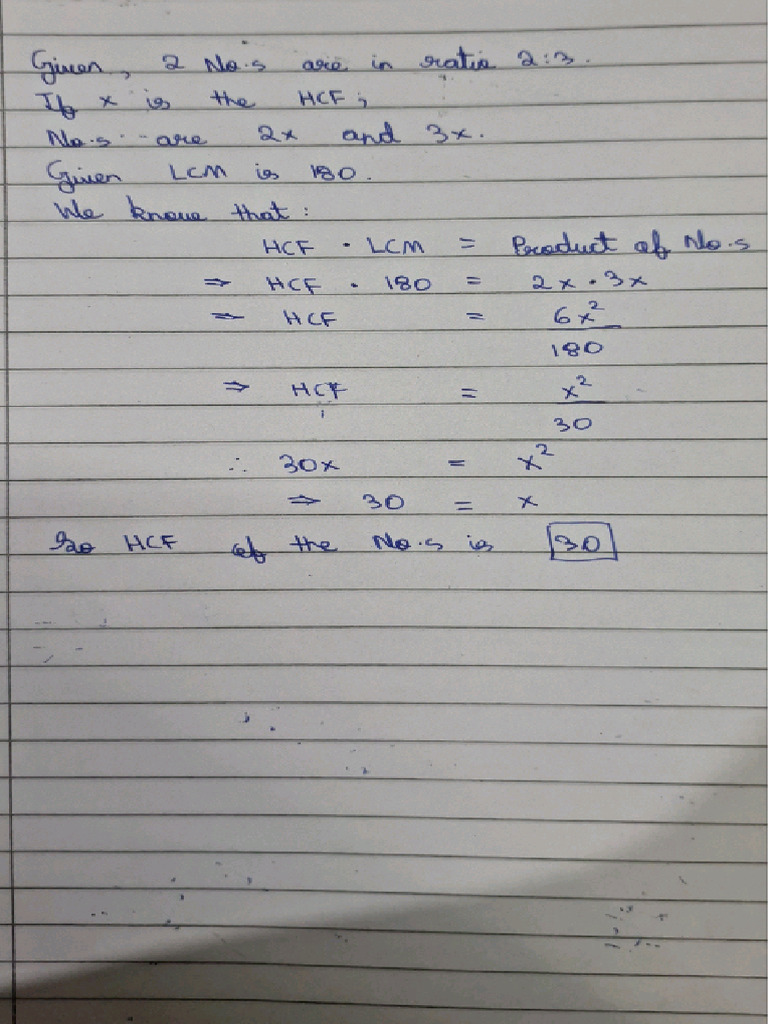 Given, 2 No.s are in ratio 2:3.
If x is the HCF;
No.s are 2x and 3x.
Given LCM is 180.
We know that:
HCF · LCM = Product of No.s
⇒ HCF · 180 = 2x · 3x
⇒ HCF = 6x²/180
⇒ HCF = x²/30
∴ 30x = x²
⇒ 30 = x
So HCF of the No.s is 30